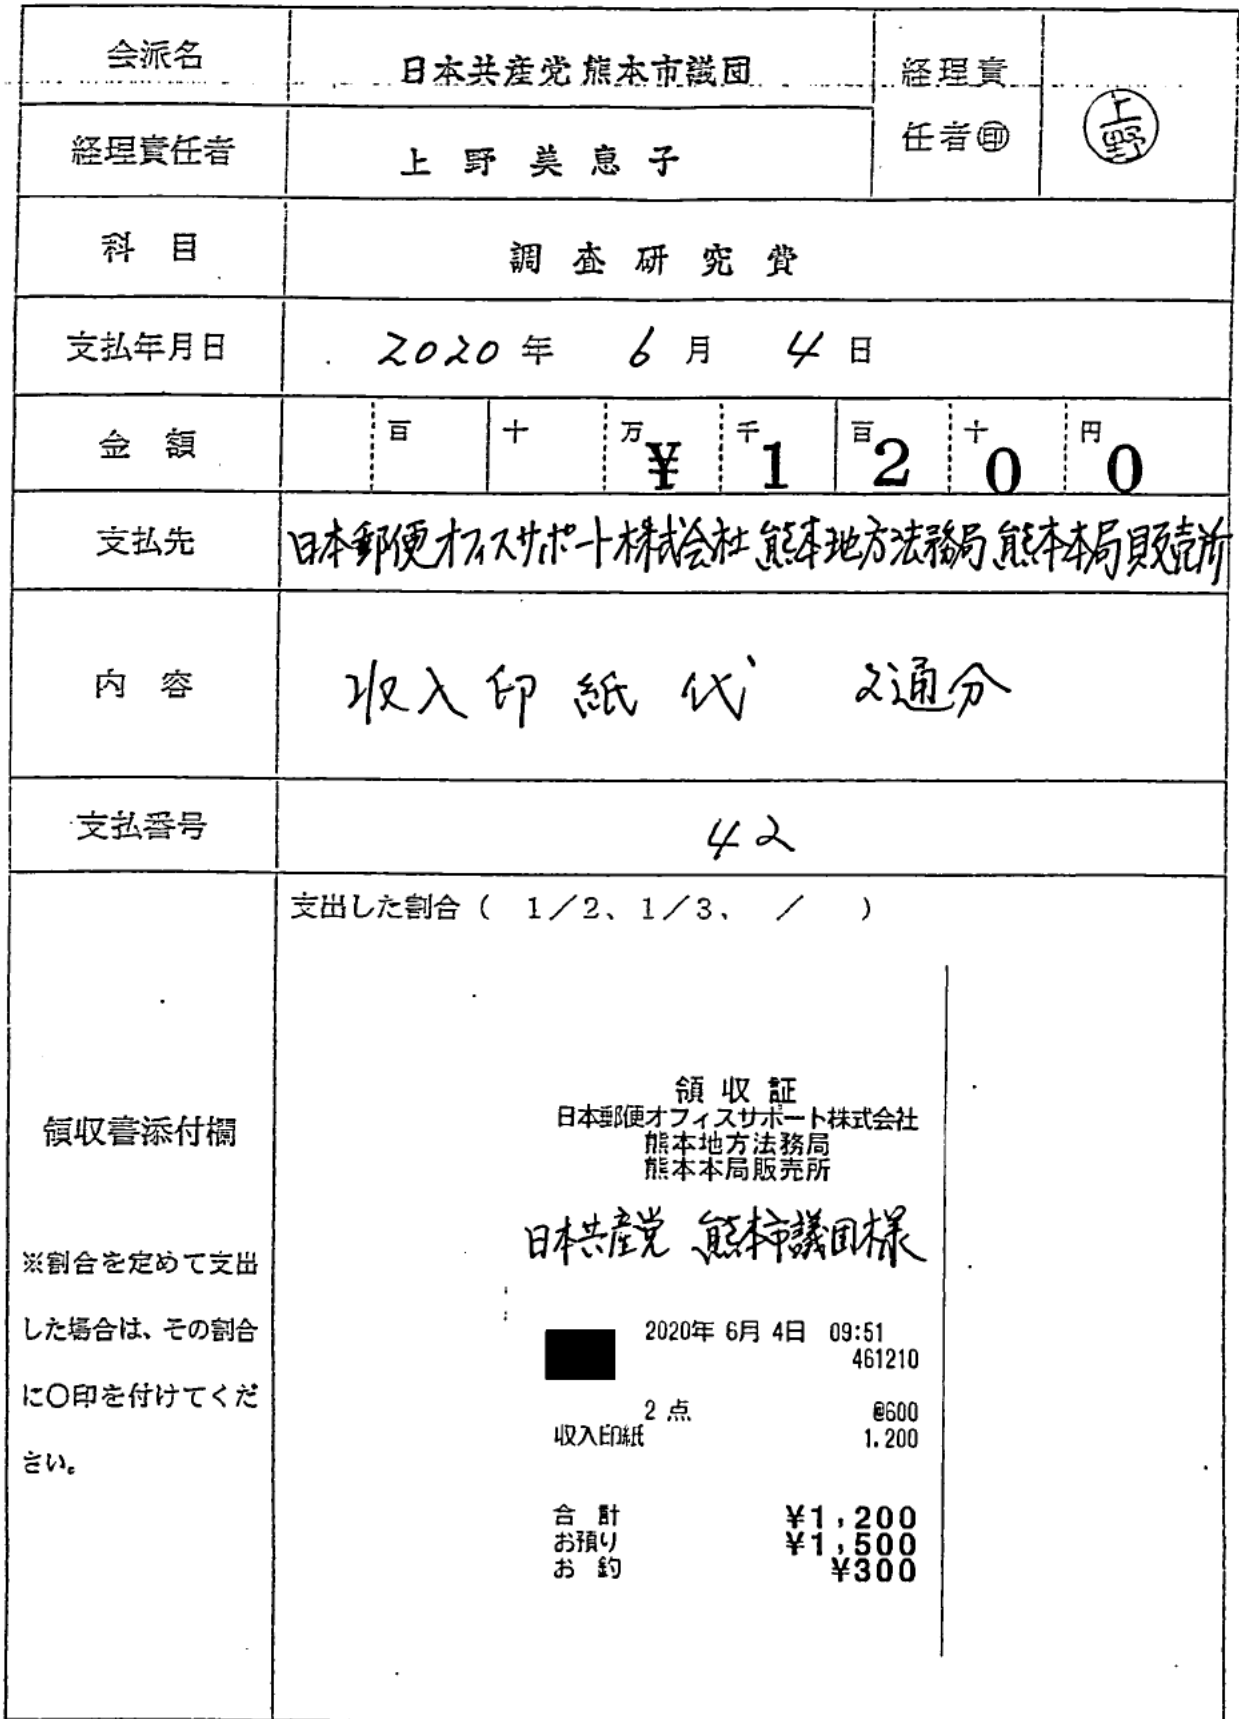 会派名 日本共産党熊本市議団 経理責任者㊞ 上野
経理責任者 上野美恵子
科目 調査研究費
支払年月日 2020年 6月 4日
金額 百 十 万 ¥ 千 1 百 2 十 0 円 0
支払先 日本郵便オフィスサポート株式会社熊本地方法務局熊本本局販売所
内容 収入印紙代 2通分
支払番号 42
支出した割合( 1/2、1/3、 / )
領収書添付欄
※割合を定めて支出
した場合は、その割合
に〇印を付けてくだ
さい。
領収証
日本郵便オフィスサポート株式会社
熊本地方法務局
熊本本局販売所
日本共産党 熊本市議団様
2020年 6月 4日 09:51
461210
2点 @600
収入印紙 1.200
合計 ¥1,200
お預り ¥1,500
お釣 ¥300